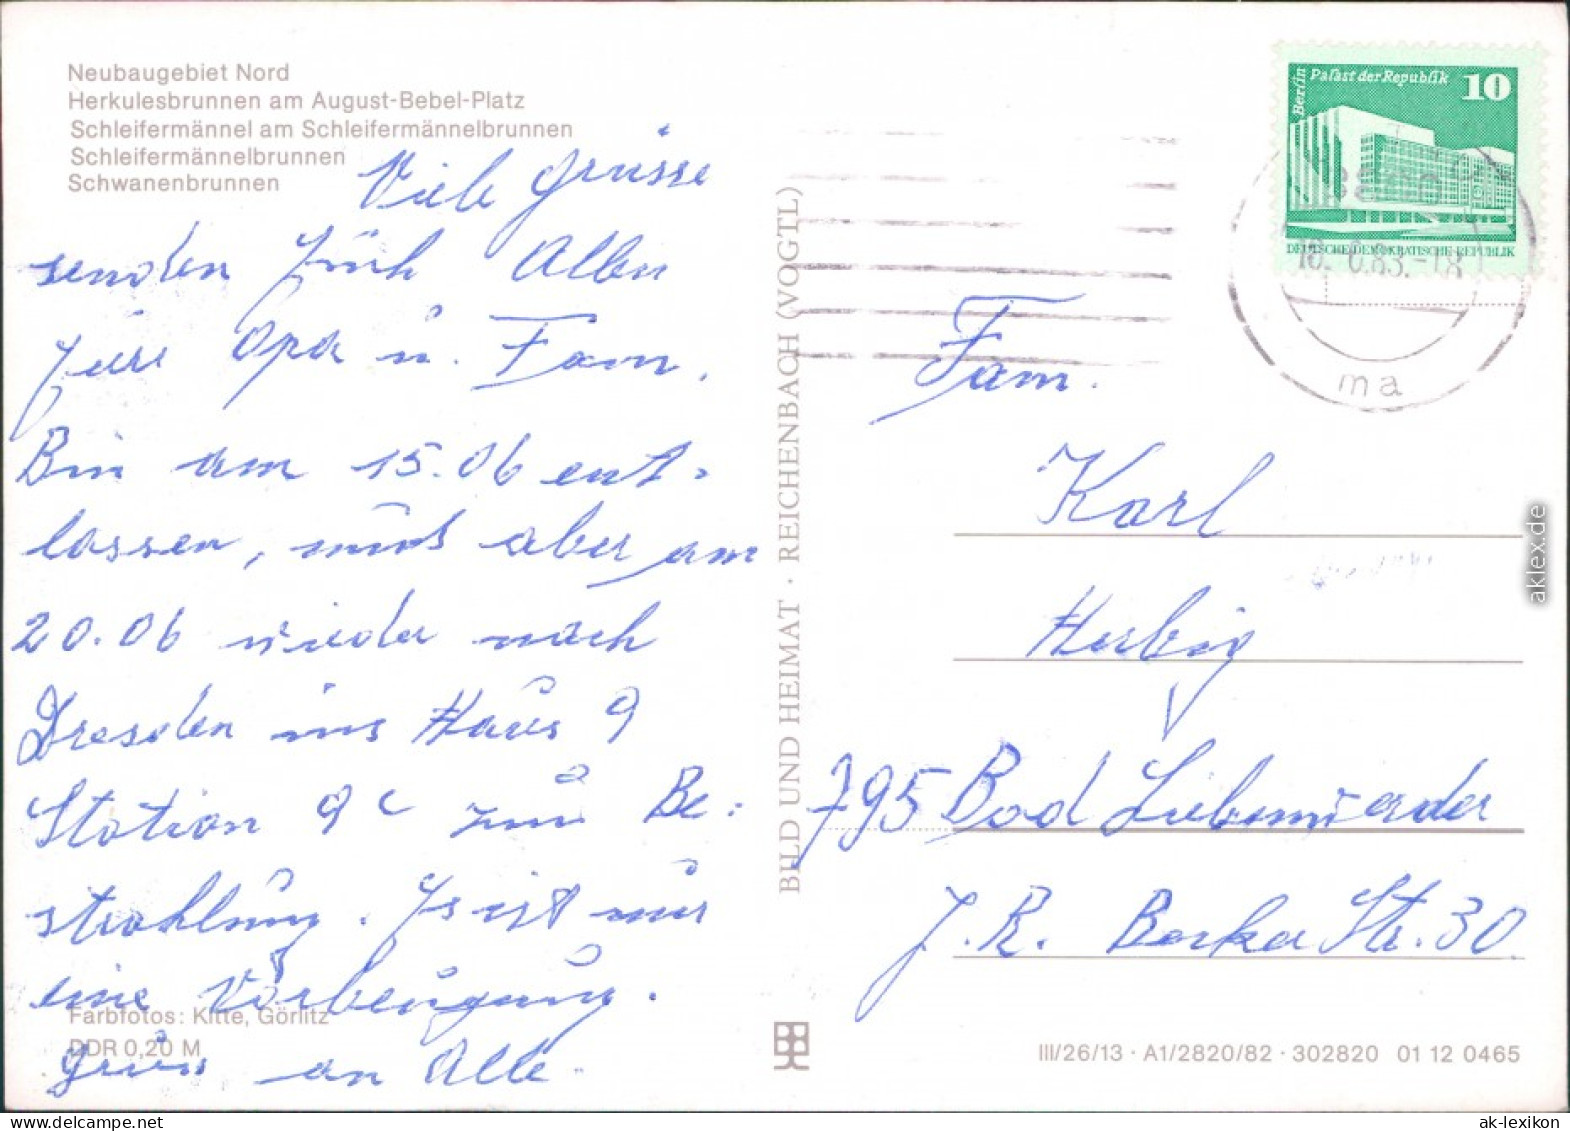 Neubaugebiet Nord
Herkulesbrunnen am August-Bebel-Platz
Schleifermännel am Schleifermännelbrunnen
Schleifermännelbrunnen
Schwanenbrunnen
Viele Grüsse
senden Euch Allen
Eure Opa u. Fam.
Bin am 15.06 ent-
lassen, muss aber am
20.06 wieder nach
Dresden ins Haus 9
Station 9 c zum Be:
strahlung. Es ist nur
eine Vorbeugung.
Grüss an Alle.
Farbfotos: Kitte, Görlitz
DDR 0,20 M
BILD UND HEIMAT · REICHENBACH (VOGTL)
Berlin
Palast der Republik
10
DEUTSCHE DEMOKRATISCHE REPUBLIK
ma
Fam.
Karl
Herbig
795 Bad Liebenwerder
J. R. Becker Str. 30
III/26/13 · A1/2820/82 · 302820 01 12 0465
aklex.de
www.delcampe.net
ak-lexikon